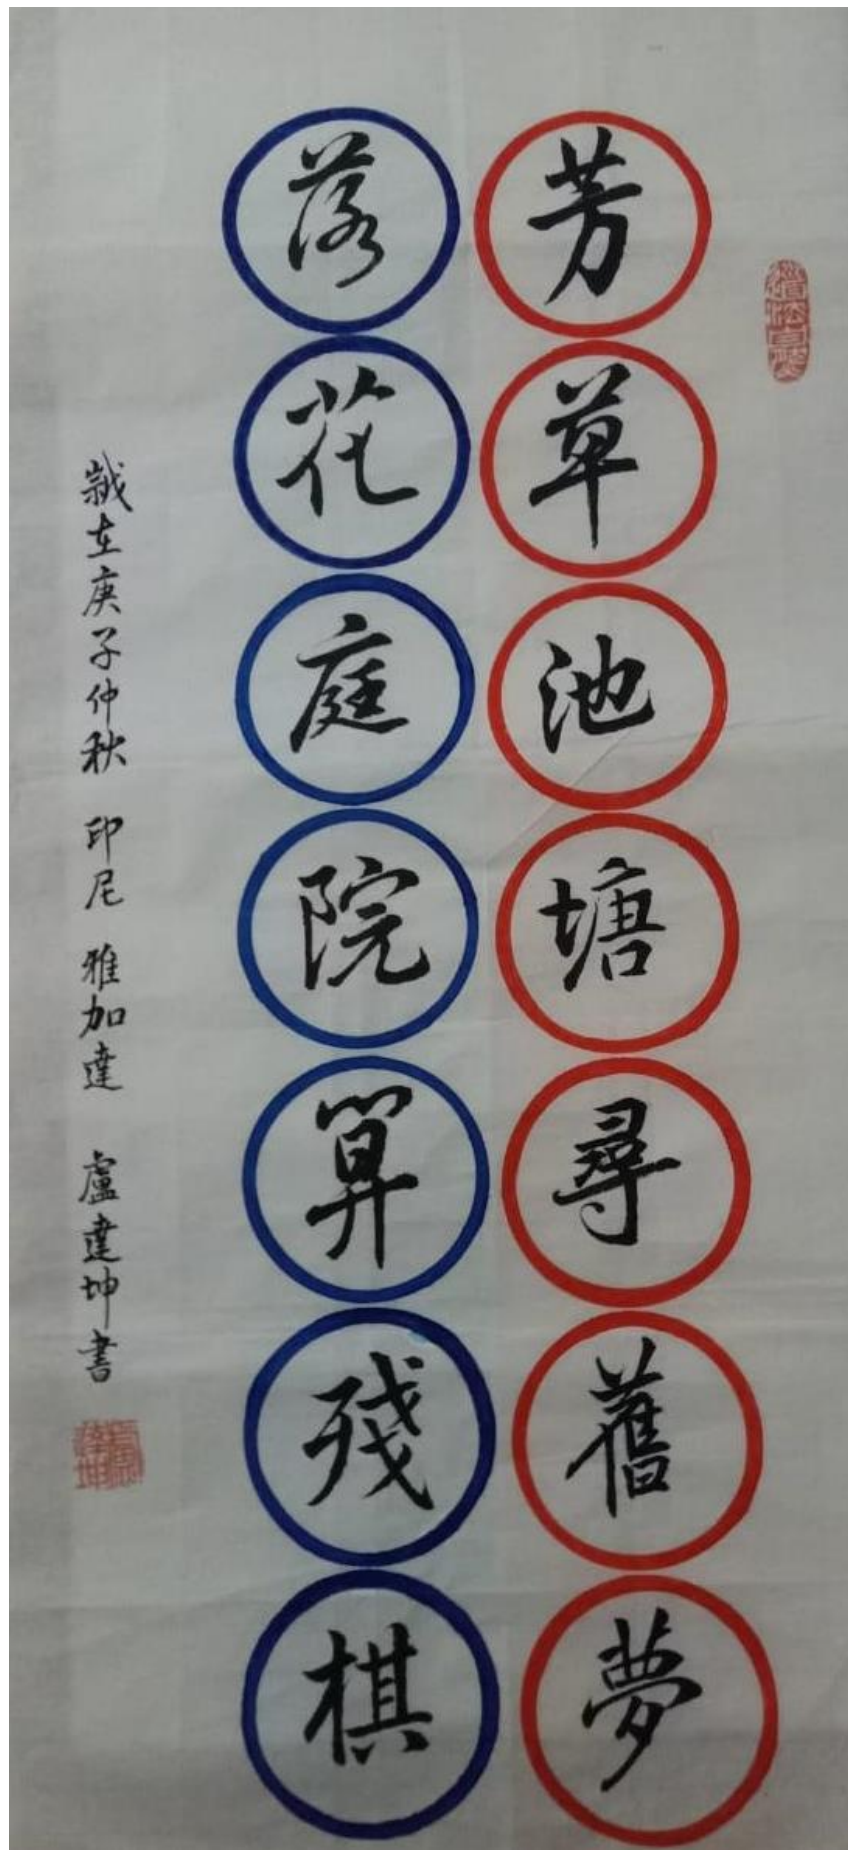 芳草池塘尋舊夢
落花庭院算殘棋
歲在庚子仲秋 印尼 雅加達 盧達坤書